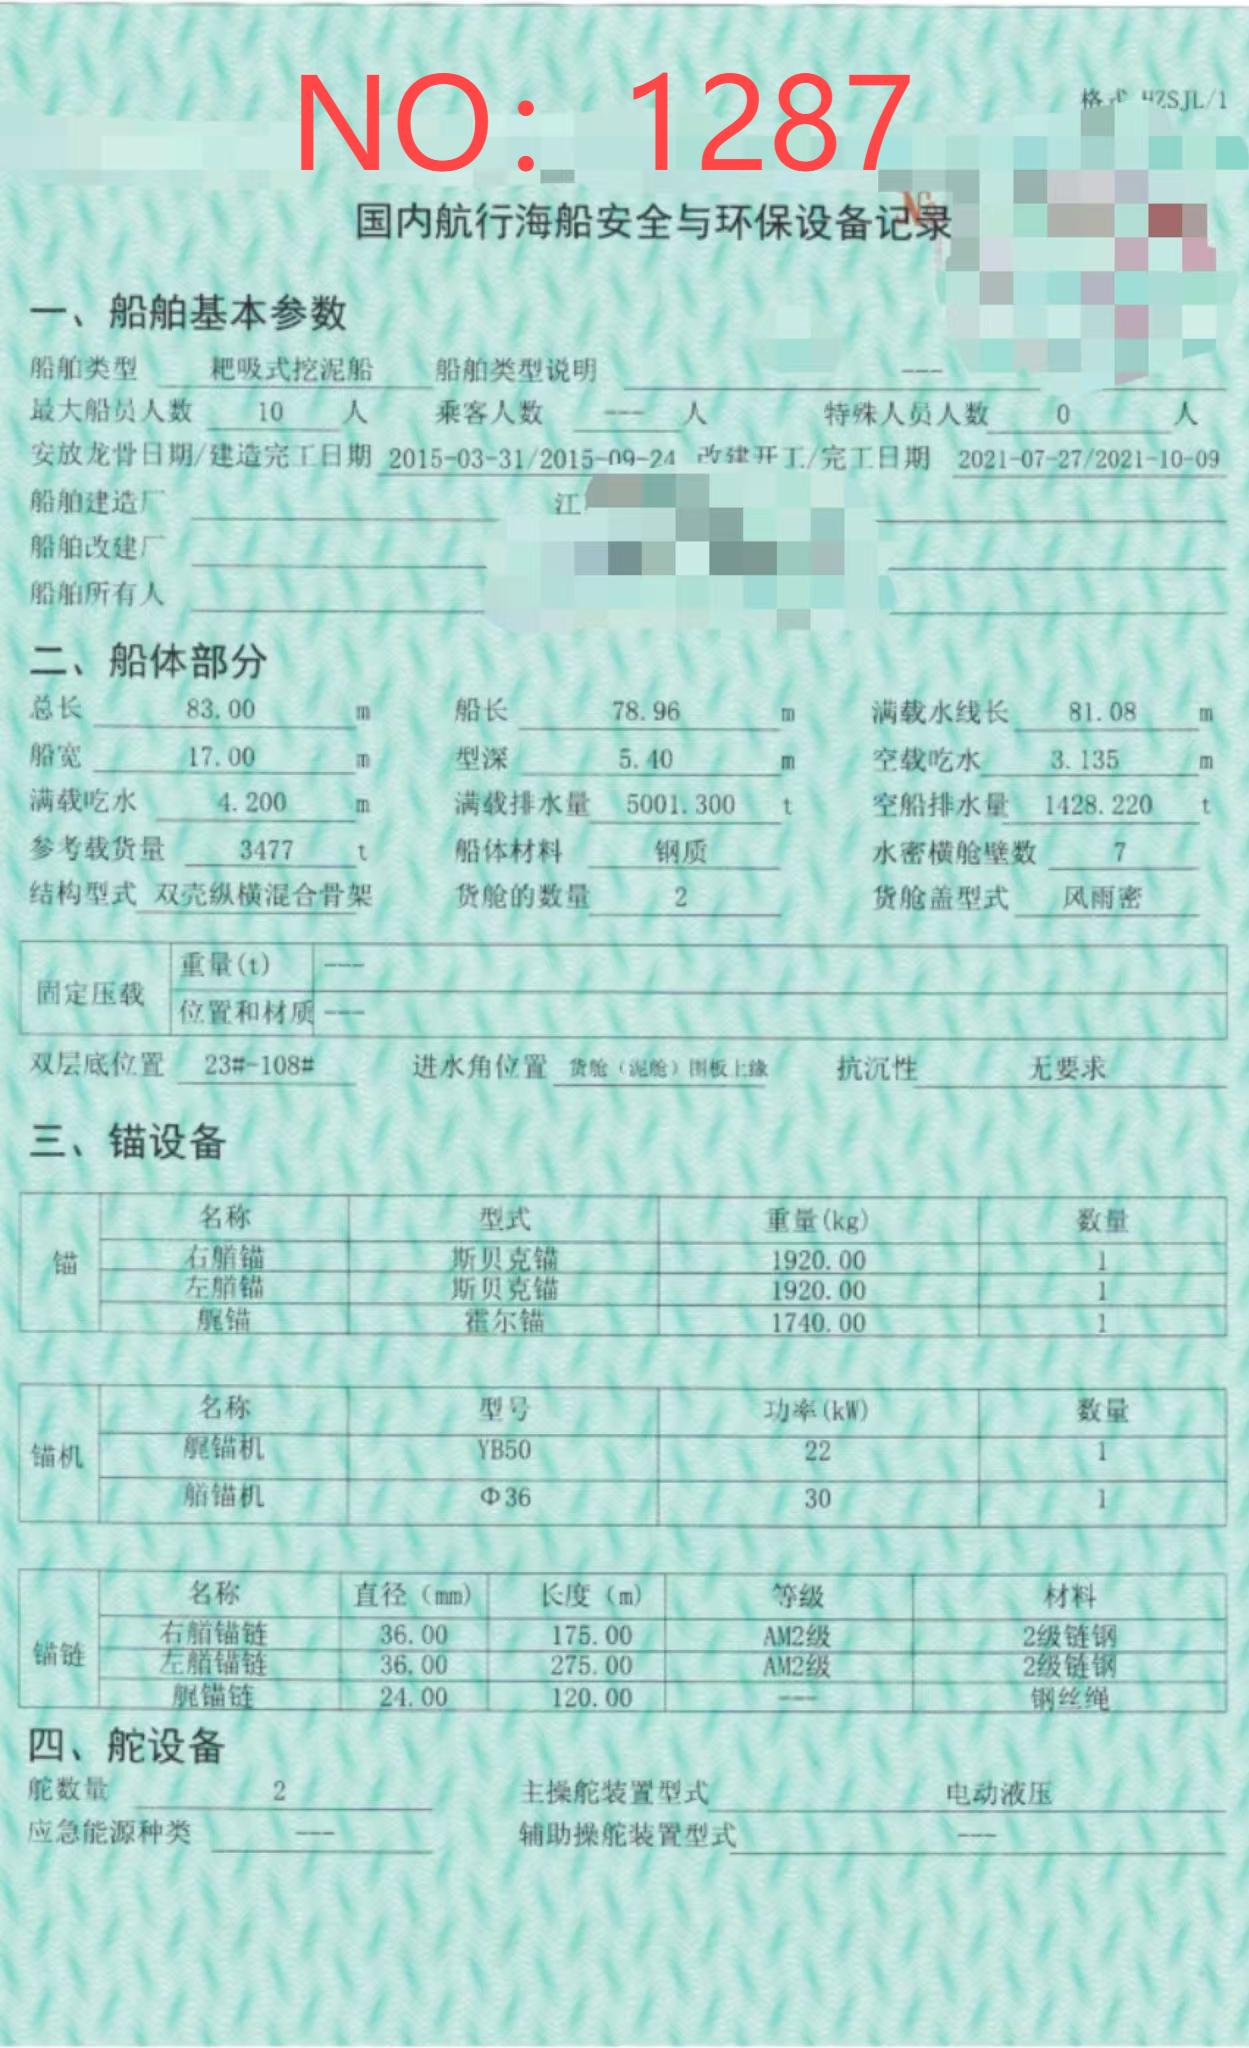 NO：1287
格式 HZSJL/1
国内航行海船安全与环保设备记录
一、船舶基本参数
船舶类型 耙吸式挖泥船 船舶类型说明 ---
最大船员人数 10 人 乘客人数 --- 人 特殊人员人数 0 人
安放龙骨日期/建造完工日期 2015-03-31/2015-09-24 改建开工/完工日期 2021-07-27/2021-10-09
船舶建造厂 江
船舶改建厂
船舶所有人
二、船体部分
总长 83.00 m 船长 78.96 m 满载水线长 81.08 m
船宽 17.00 m 型深 5.40 m 空载吃水 3.135 m
满载吃水 4.200 m 满载排水量 5001.300 t 空船排水量 1428.220 t
参考载货量 3477 t 船体材料 钢质 水密横舱壁数 7
结构型式 双壳纵横混合骨架 货舱的数量 2 货舱盖型式 风雨密
固定压载 重量(t) ---
位置和材质 ---
双层底位置 23#-108# 进水角位置 货舱（泥舱）围板上缘 抗沉性 无要求
三、锚设备
锚 名称 型式 重量(kg) 数量
右艏锚 斯贝克锚 1920.00 1
左艏锚 斯贝克锚 1920.00 1
艉锚 霍尔锚 1740.00 1
锚机 名称 型号 功率(kW) 数量
艉锚机 YB50 22 1
艏锚机 Φ36 30 1
锚链 名称 直径（mm） 长度（m） 等级 材料
右艏锚链 36.00 175.00 AM2级 2级链钢
左艏锚链 36.00 275.00 AM2级 2级链钢
艉锚链 24.00 120.00 --- 钢丝绳
四、舵设备
舵数量 2 主操舵装置型式 电动液压
应急能源种类 --- 辅助操舵装置型式 ---